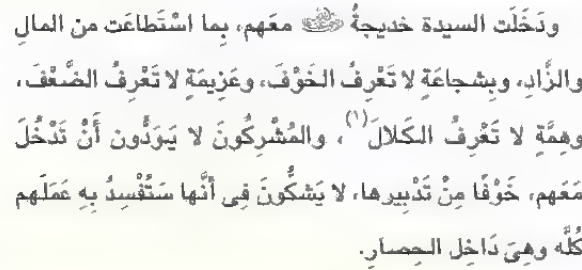 ودَخَلَت السيدة خديجةُ رضي الله عنها معَهم، بِما اسْتَطاعَت من المالِ
والزَّادِ، وبِشجاعَةٍ لا تَعْرِفُ الخَوْفَ، وعَزِيمَةٍ لا تَعْرِفُ الضَّعْفَ،
وهِمَّةٍ لا تَعْرِفُ الكَلالَ(١)، والمُشْرِكُونَ لا يَوَدُّون أَنْ تَدْخُلَ
مَعَهم، خَوْفًا مِنْ تَدْبِيرِها، لا يَشكُّونَ فِى أنَّها سَتُفْسِدُ بِهِ عَمَلَهم
كُلَّه وهِىَ دَاخِل الحِصارِ.